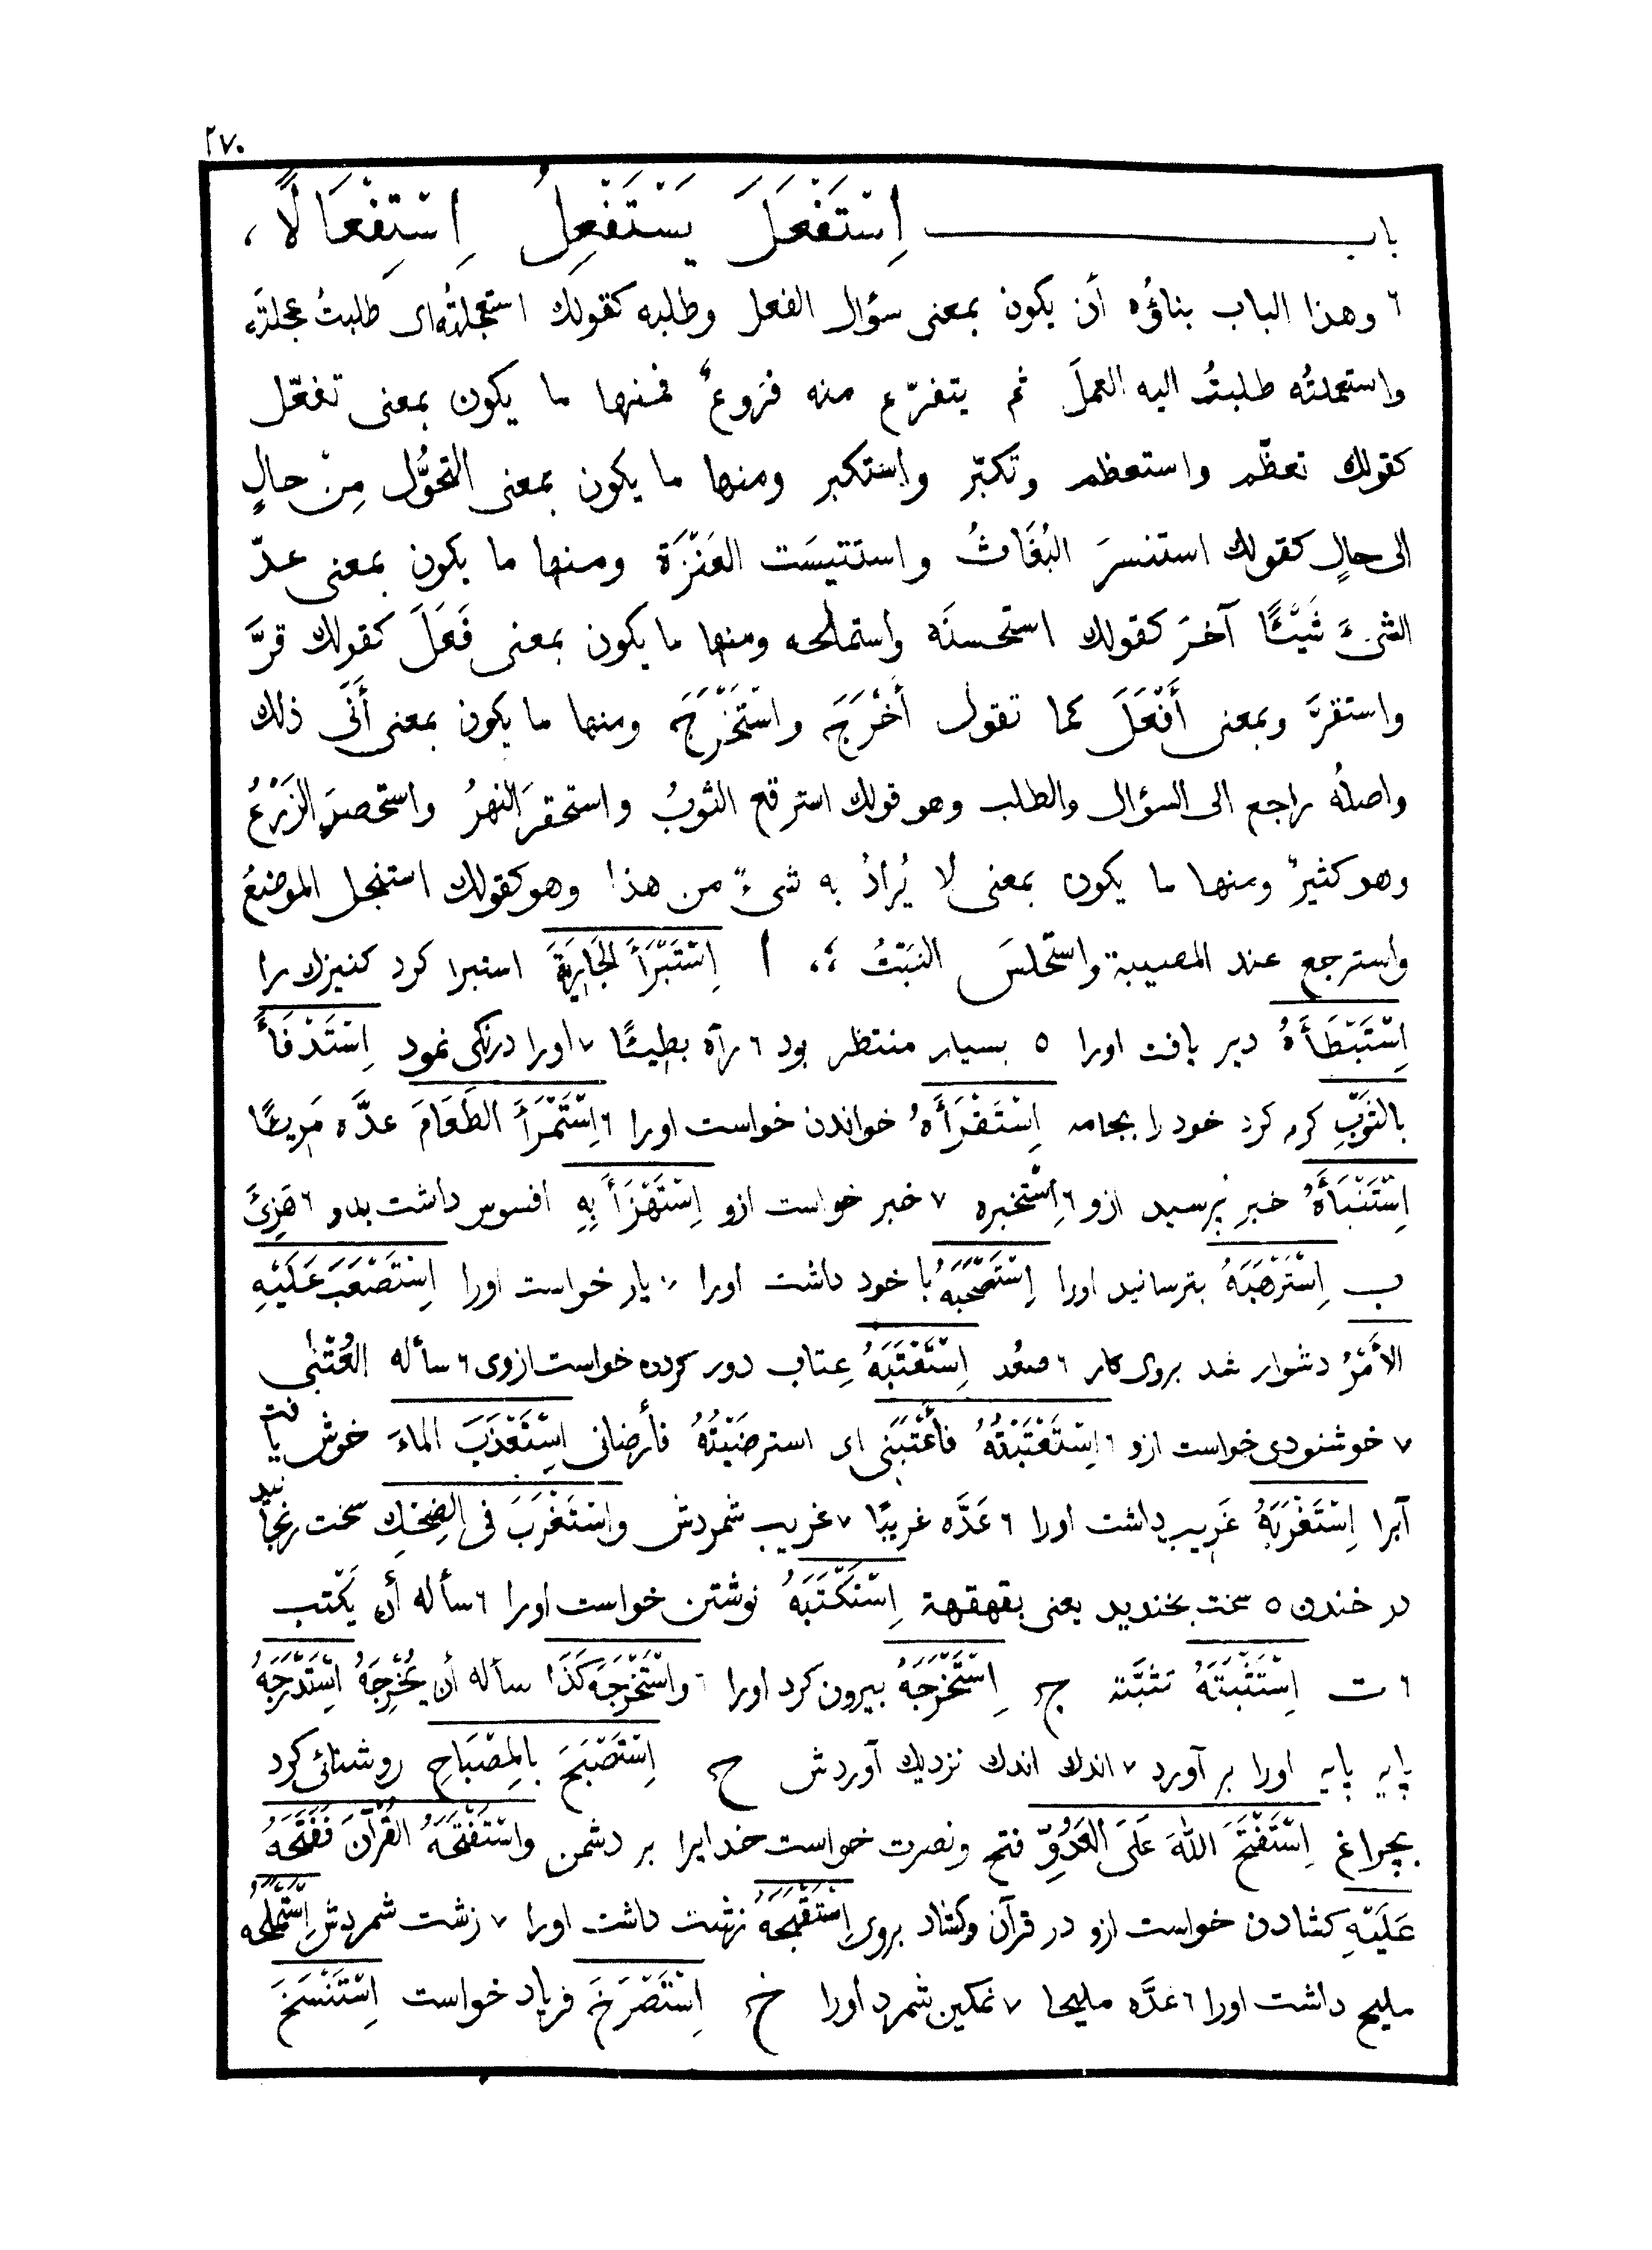 ٢٧٠
باب اِسْتَفْعَلَ يَسْتَفْعِلُ اِسْتِفْعَالًا،
٦ وهذا الباب بناؤه أن يكون بمعنى سؤال الفعل وطلبه كقولك استعجلتُه اى طلبتُ عجلتَه
واستعملتُه طلبتُ اليه العملَ ثم يتفرّع منه فروعٌ فمنها ما يكون بمعنى تفعّل
كقولك تعظّم واستعظم وتكبّر واستكبر ومنها ما يكون بمعنى التحوُّل مِنْ حالٍ
الى حالٍ كقولك استنسرَ البُغَاثُ واستتيسَت العَنْزَة ومنها ما يكون بمعنى عدّ
الشىءَ شَيْئًا آخرَ كقولك استحسنَه واستملحه ومنها ما يكون بمعنى فَعَلَ كقولك قرَّ
واستقرَّ وبمعنى أَفْعَلَ كما تقول أَخْرَجَه واسْتَخْرَجَه ومنها ما يكون بمعنى أَنَى ذلك
واصلُه راجع الى السؤال والطلب وهو قولك استرقع الثوبُ واستحقرَ النهرُ واستحصدَ الزَرْعُ
وهو كثيرٌ ومنها ما يكون بمعنى لا يُرادُ به شىءٌ من هذا وهو كقولك استنجل الموضعُ
واسترجع عند المصيبة واستحلسَ النَبْتُ ؛، أ اِسْتَبْرَأَ الجَارِيَةَ استبرا كرد كنيزك را
اِسْتَبْطَأَهُ دير يافت اورا ٥ بسيار منتظر بود ٦ رآه بطِيئًا ٧ اورا درنكى نمود اِسْتَدْفَأَ
بالثَوْبِ كرم كرد خود را بجامه اِسْتَقْرَأَهُ خواندن خواست اورا ٦ اِسْتَمْرَأَ الطَعَامَ عدَّه مَرِيئًا
اِسْتَنْبَأَهُ خبر بپرسيد ازو ٦ اِسْتخبره ٧ خبر خواست ازو اِسْتَهْزَأَ بِهِ افسوس داشت بدو ٦ هَزِئَ
ب اِسْتَرْهَبَهُ بترسانيد اورا اِسْتَصْحَبَهُ با خود داشت اورا ٧ يار خواست اورا اِسْتَصْعَبَ عَلَيْهِ
الأَمْرُ دشوار شد بروى كار ٦ صعُب اِسْتَعْتَبَهُ عِتاب دور كردن خواست ازوى ٦ سأله العُتْبٰى
٧ خوشنودى خواست ازو ٦ اِسْتَعْتَبْتُهُ فأَعْتَبَنِى اى استرضَيْتُهُ فأرضانى اِسْتَعْذَبَ الماءَ خوش يافت
آبرا اِسْتَغْرَبَهُ غَرِيب داشت اورا ٦ عَدَّه غريبًا ٧ غريب شمردش واِسْتَغْرَبَ فى الضِحْكِ سخت رنجانيد
در خندن ٥ سخت بخنديد يعنى بقهقهة اِسْتَكْتَبَهُ نوشتن خواست اورا ٦ سأله أن يَكْتب
٦ ت اِسْتَثْبَتَهُ تثبَّته ج اِسْتَخْرَجَهُ بيرون كرد اورا ٦ واِسْتَخْرَجَه كَذَا سأله أن يُخْرِجَهُ اِسْتَدْرَجَهُ
پايه پايه اورا بر آورد ٧ اندك اندك نزديك آوردش ح اِسْتَصْبَحَ بالمِصْبَاحِ روشنائى كرد
بچراغ اِسْتَفْتَحَ اللّٰهَ عَلَى العَدُوِّ فتح ونصرت خواست خدايرا بر دشمن واِسْتَفْتَحَهُ القُرْآنَ فَفَتَحَهُ
عَلَيْهِ كشادن خواست ازو در قرآن وكشاد بروى اِسْتَقْبَحَهُ زشت داشت اورا ٧ زشت شمردش اِسْتَمْلَحَهُ
مليح داشت اورا ٦ عدَّه مليحا ٧ نمكين شمرد اورا خ اِسْتَصْرَخَ فرياد خواست اِسْتَنْسَخَ